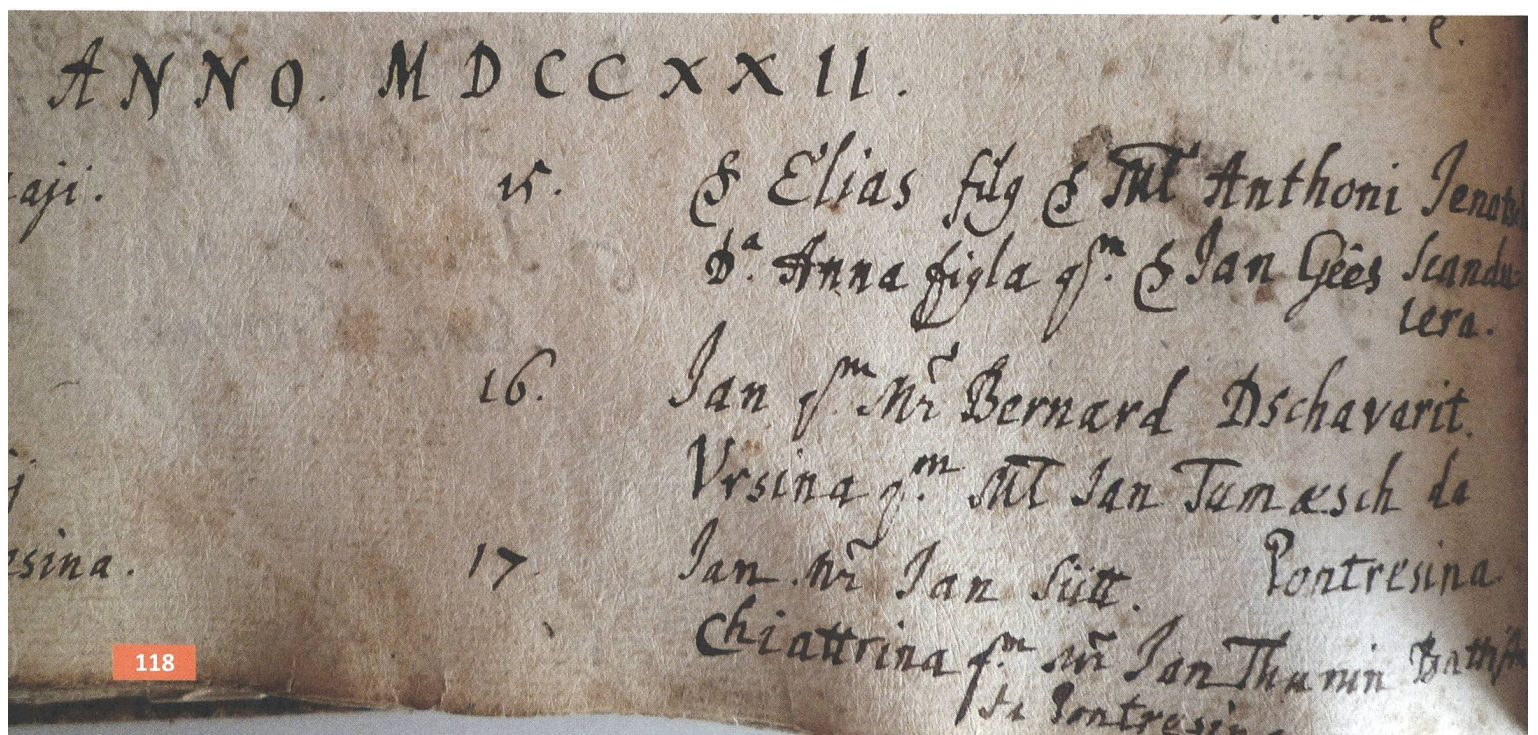 ANNO. MDCCXXII.
aji. 15. Elias filg Mt Anthoni Jenatsch
Dª. Anna figla qm. Jan Gês Scandu-
lera.
16. Jan qm Mr Bernard Dschavarit.
Vrsina qm. Mt Jan Tumæsch da
sina. 17. Jan Mr Jan Sütt. Pontresina
Chiattrina qm. Mr Jan Thumin
da Pontresina
118